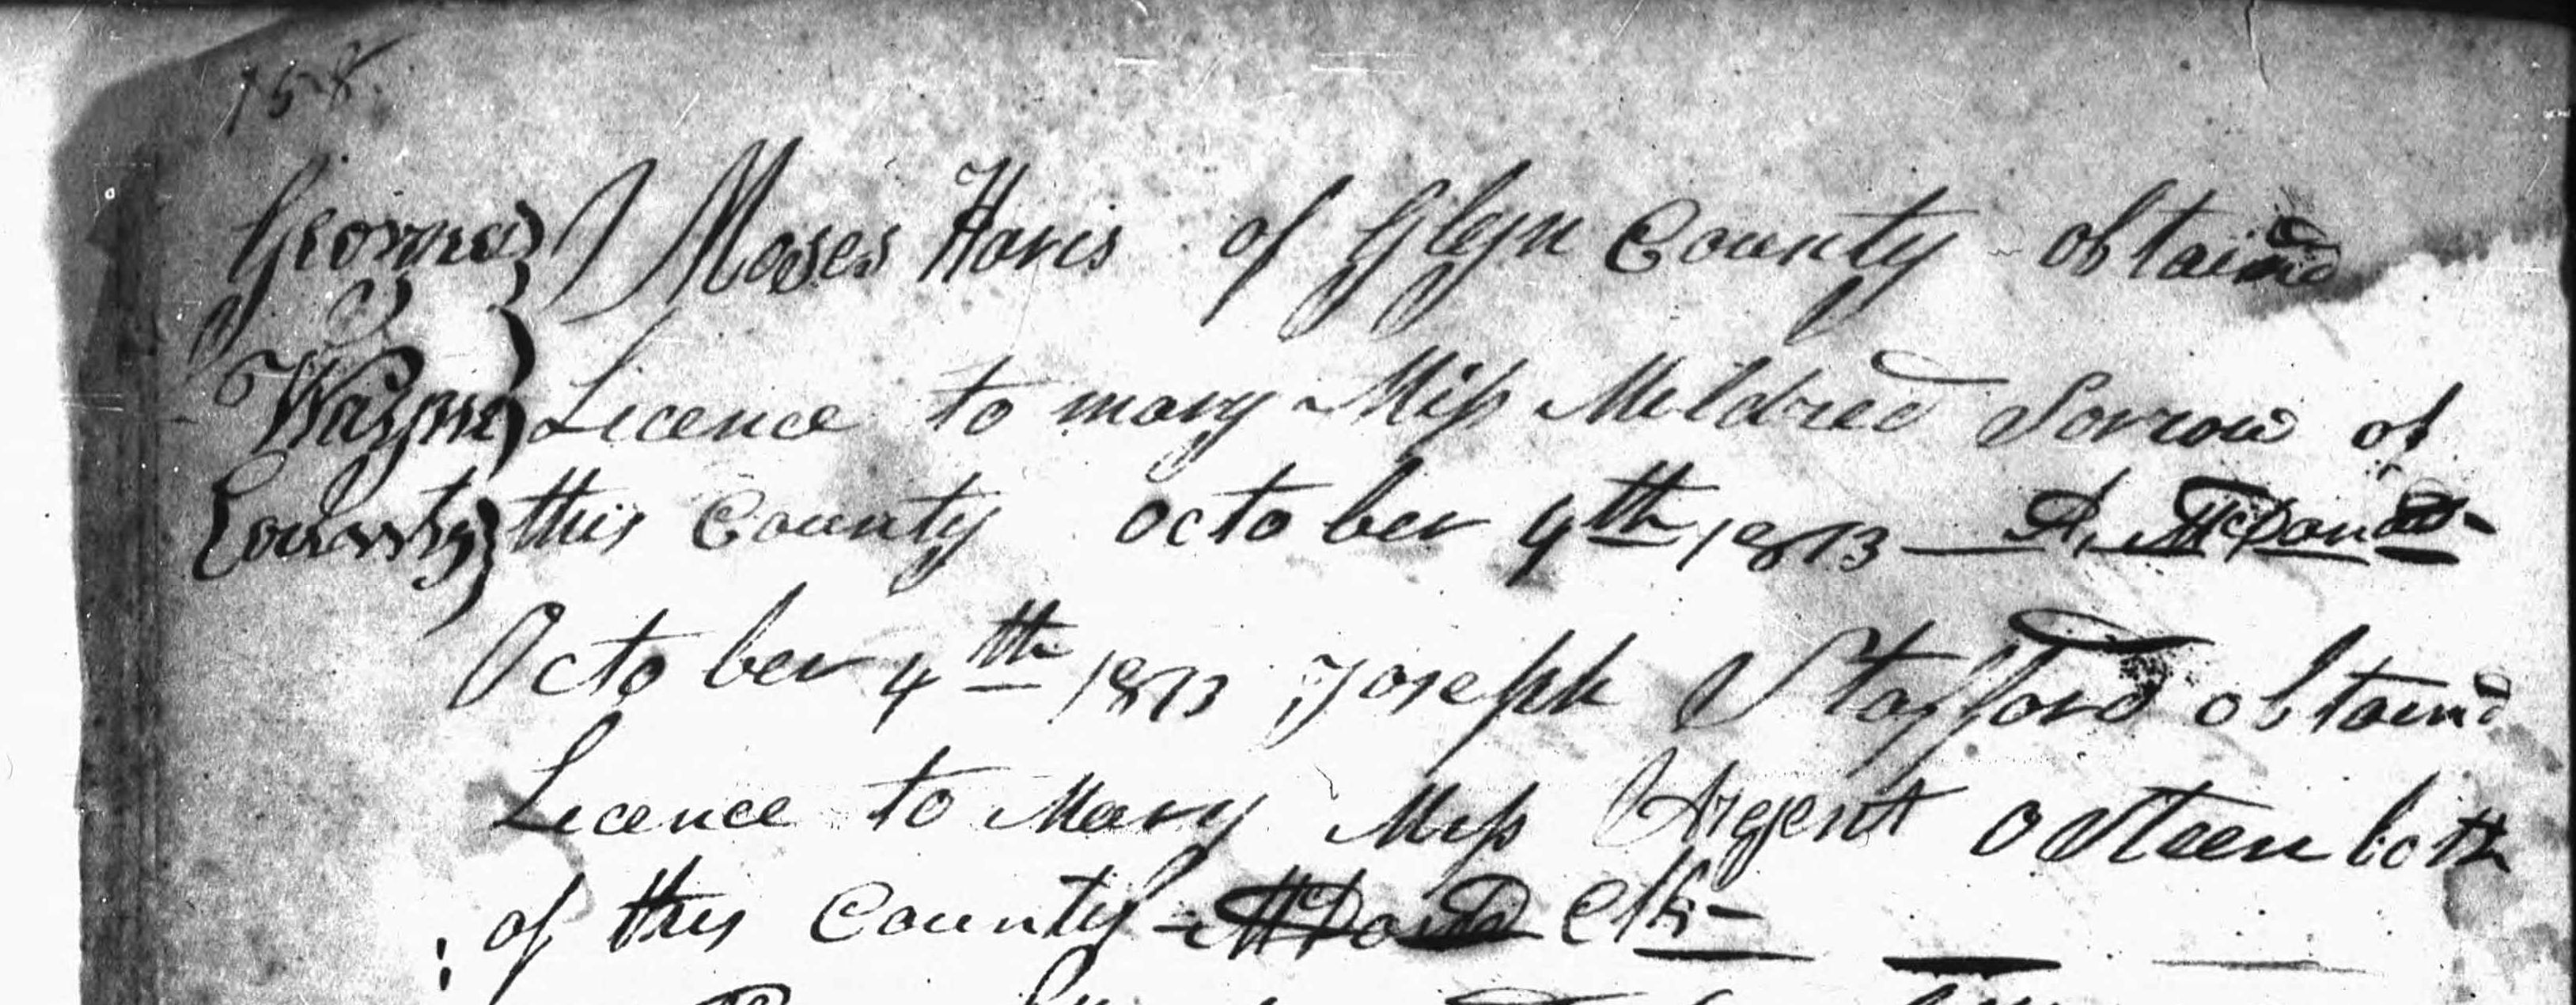 158
Georgia } Moses Haris of Glyn County obtaind
Wayne } Licence to mary Miss Mildred Sorrow of
County } this County October 4th 1813 — A. McDonald
October 4th 1813 Joseph Stafford obtaind
Licence to Mary Miss Argent Osteen both
of this County - McDonald Clk -